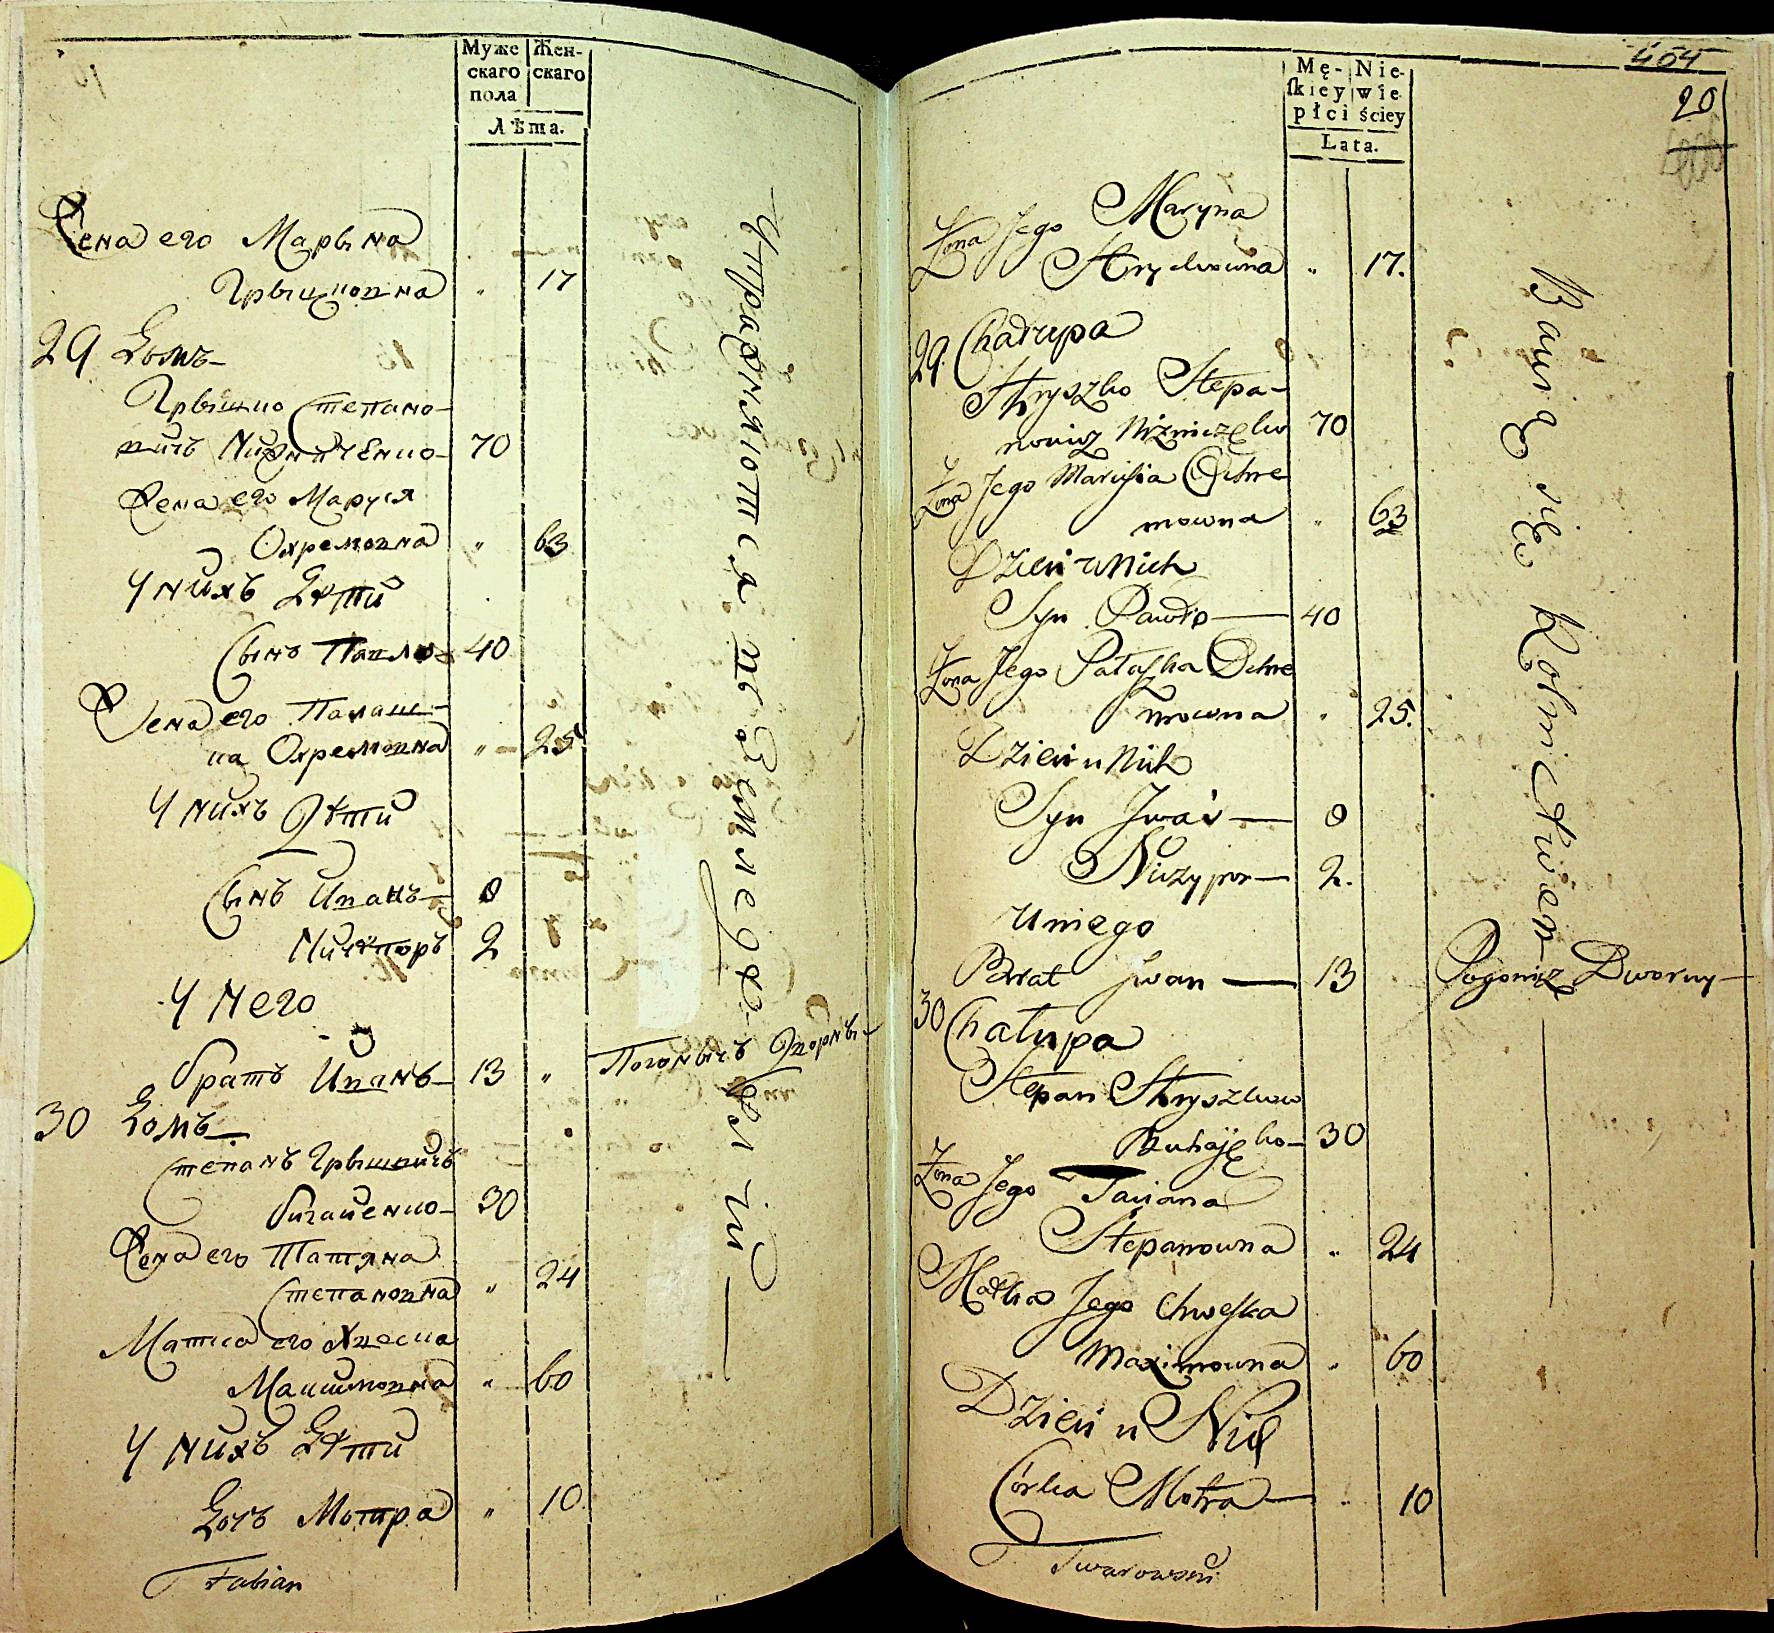 Муже Жен-
скаго скаго
пола
Лѣта.
Жена его Марына
Грыцковна " 17
29 Домъ
Грышко Степано-
вичъ Нижниченко 70
Жена его Маруся
Охремовна " 63
У нихъ Дѣти
Сынъ Павло 40
Жена его Палаш-
ка Охремовна " 25
У нихъ Дѣти
Сынъ Иванъ 8
Ничипоръ 2
У него
братъ Иванъ 13 " Погонычъ Дворны-
30 Домъ
Степанъ Грышковичъ
бугаенко 30
Жена его Татяна
Степановна " 24
Матка его Хвеска
Максимовна " 60
У нихъ Дѣти
Дочъ Мотра " 10
Fabian
Упражняются въ Земледѣліи
404
20
Mę- Nie-
ſkiey wie
płci ściey
Lata.
Żona Jego Maryna
Hryckowna " 17.
29 Chałupa
Hryszko Stepa-
nowicz Niżniczęko 70
Żona Jego Marusia Ochre
mowna " 63
Dzieci u Nich
Syn Pawło 40
Żona Jego Pałaſzka Ochre
mowna " 25.
Dzieci u Nich
Syn Jwan 8
Niczypor 2.
U niego
Brat Jwan 13 Pogonicz Dworny
30 Chałupa
Stepan Hryszkow
Buhajęko 30
Żona Jego Taciana
Stepanowna " 24
Matka Jego Chweſka
Maximowna " 60
Dzieci u Nich
Córka Motra " 10
Twarowski
Bawią się Rolnictwem